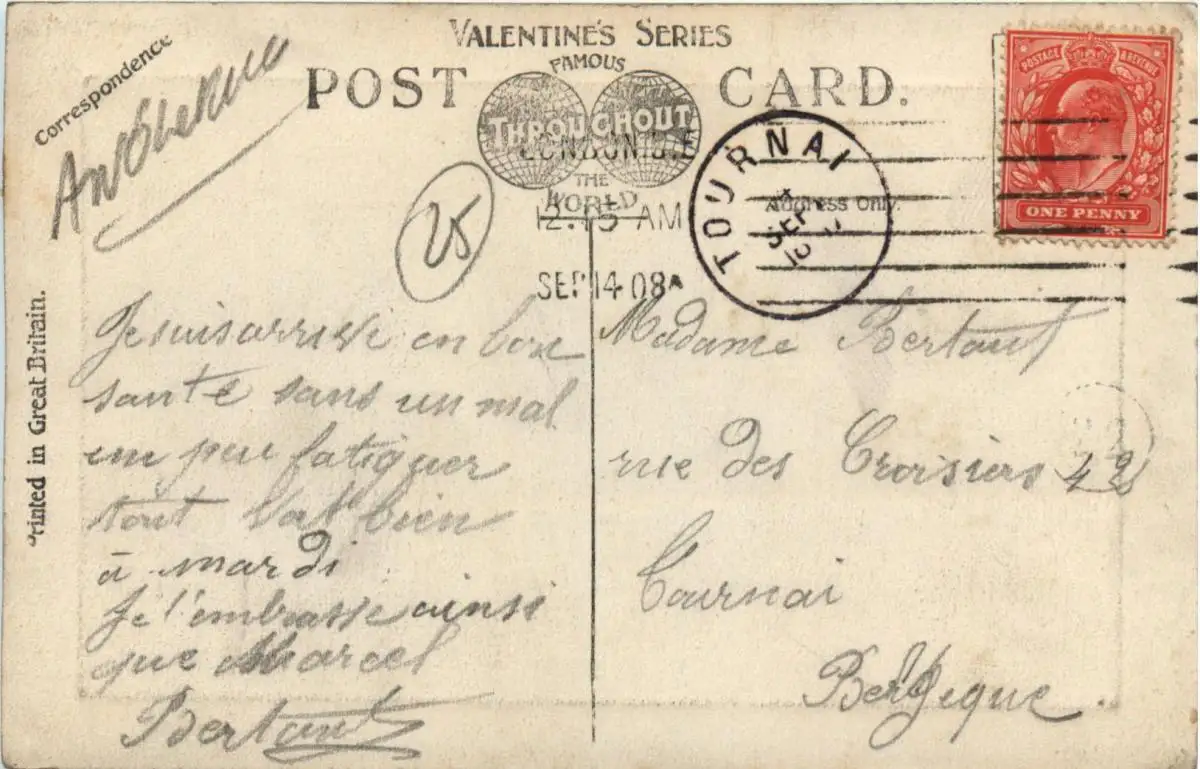 VALENTINE'S SERIES
FAMOUS
POST CARD.
THROUGHOUT
THE
WORLD
Correspondence
LONDON. S.E
12.15 AM
SEP 14 08
TOURNAI
SEPT
Address Only.
POSTAGE & REVENUE
ONE PENNY
25
Printed in Great Britain.
Je suis arrivé en bon
santé sans un mal
un peu fatiguer
tout vat bien
à mardi
Je t'embrasse ainsi
que Marcel
Bertaut
Madame Bertaut
rue des Croisiers 42
Tournai
Belgique